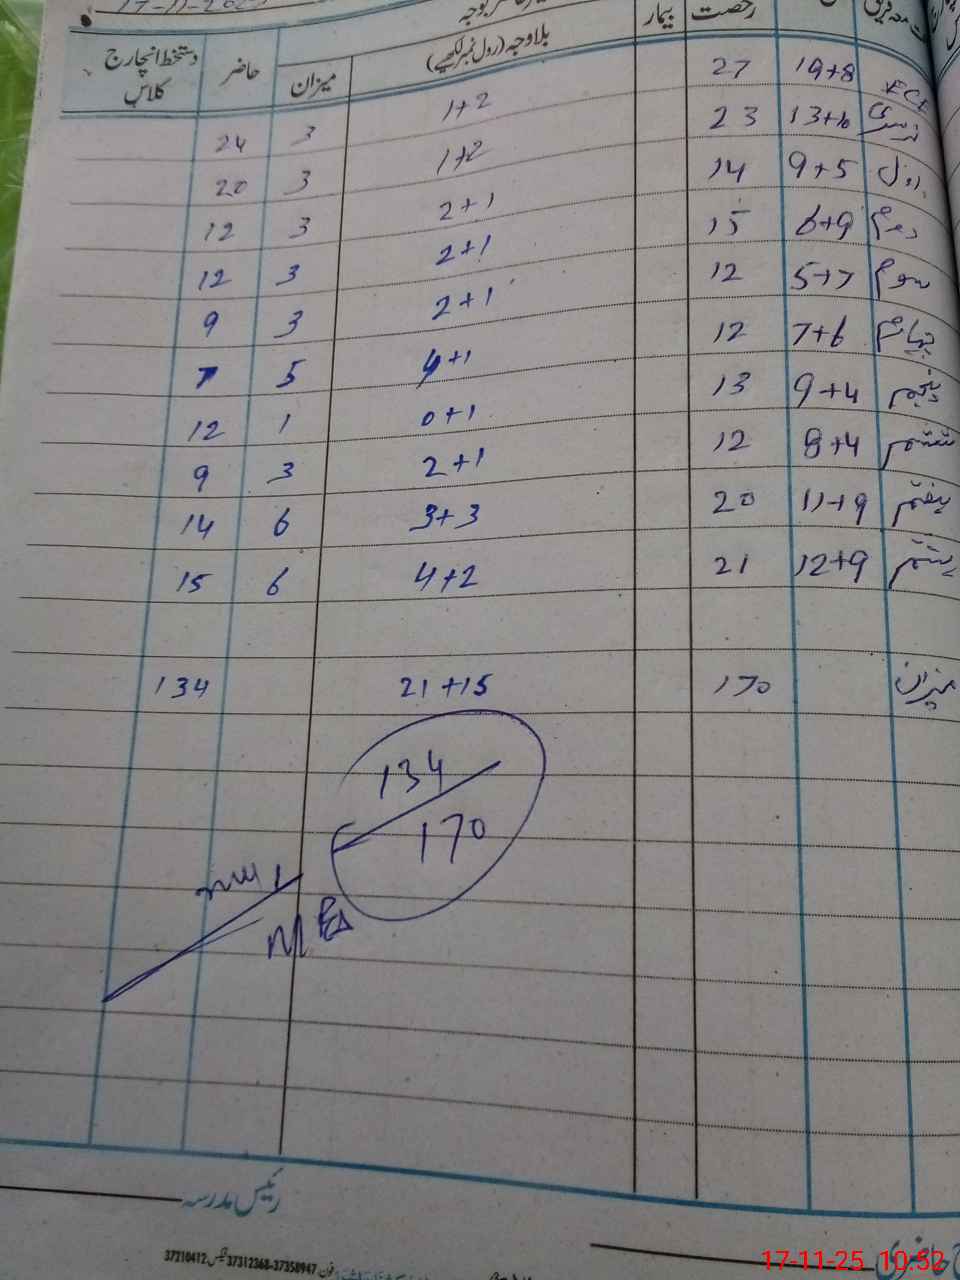 رخصت بیمار
بلاوجہ (رول نمبر لکھیے) میزان حاضر دستخط انچارج کلاس
ECE 19+8 27 1+2 3 24
نرسری 13+10 23 1+2 3 20
اول 9+5 14 2+1 3 12
دوم 6+9 15 2+1 3 12
سوم 5+7 12 2+1 3 9
چہارم 7+6 12 4+1 5 7
پنجم 9+4 13 0+1 1 12
ششم 8+4 12 2+1 3 9
ہفتم 11+9 20 3+3 6 14
ہشتم 12+9 21 4+2 6 15
میزان 170 21+15 134
134
170
رئیس مدرسہ
فون 37358947-37312368 فیکس 37210412
17-11-25 10:52